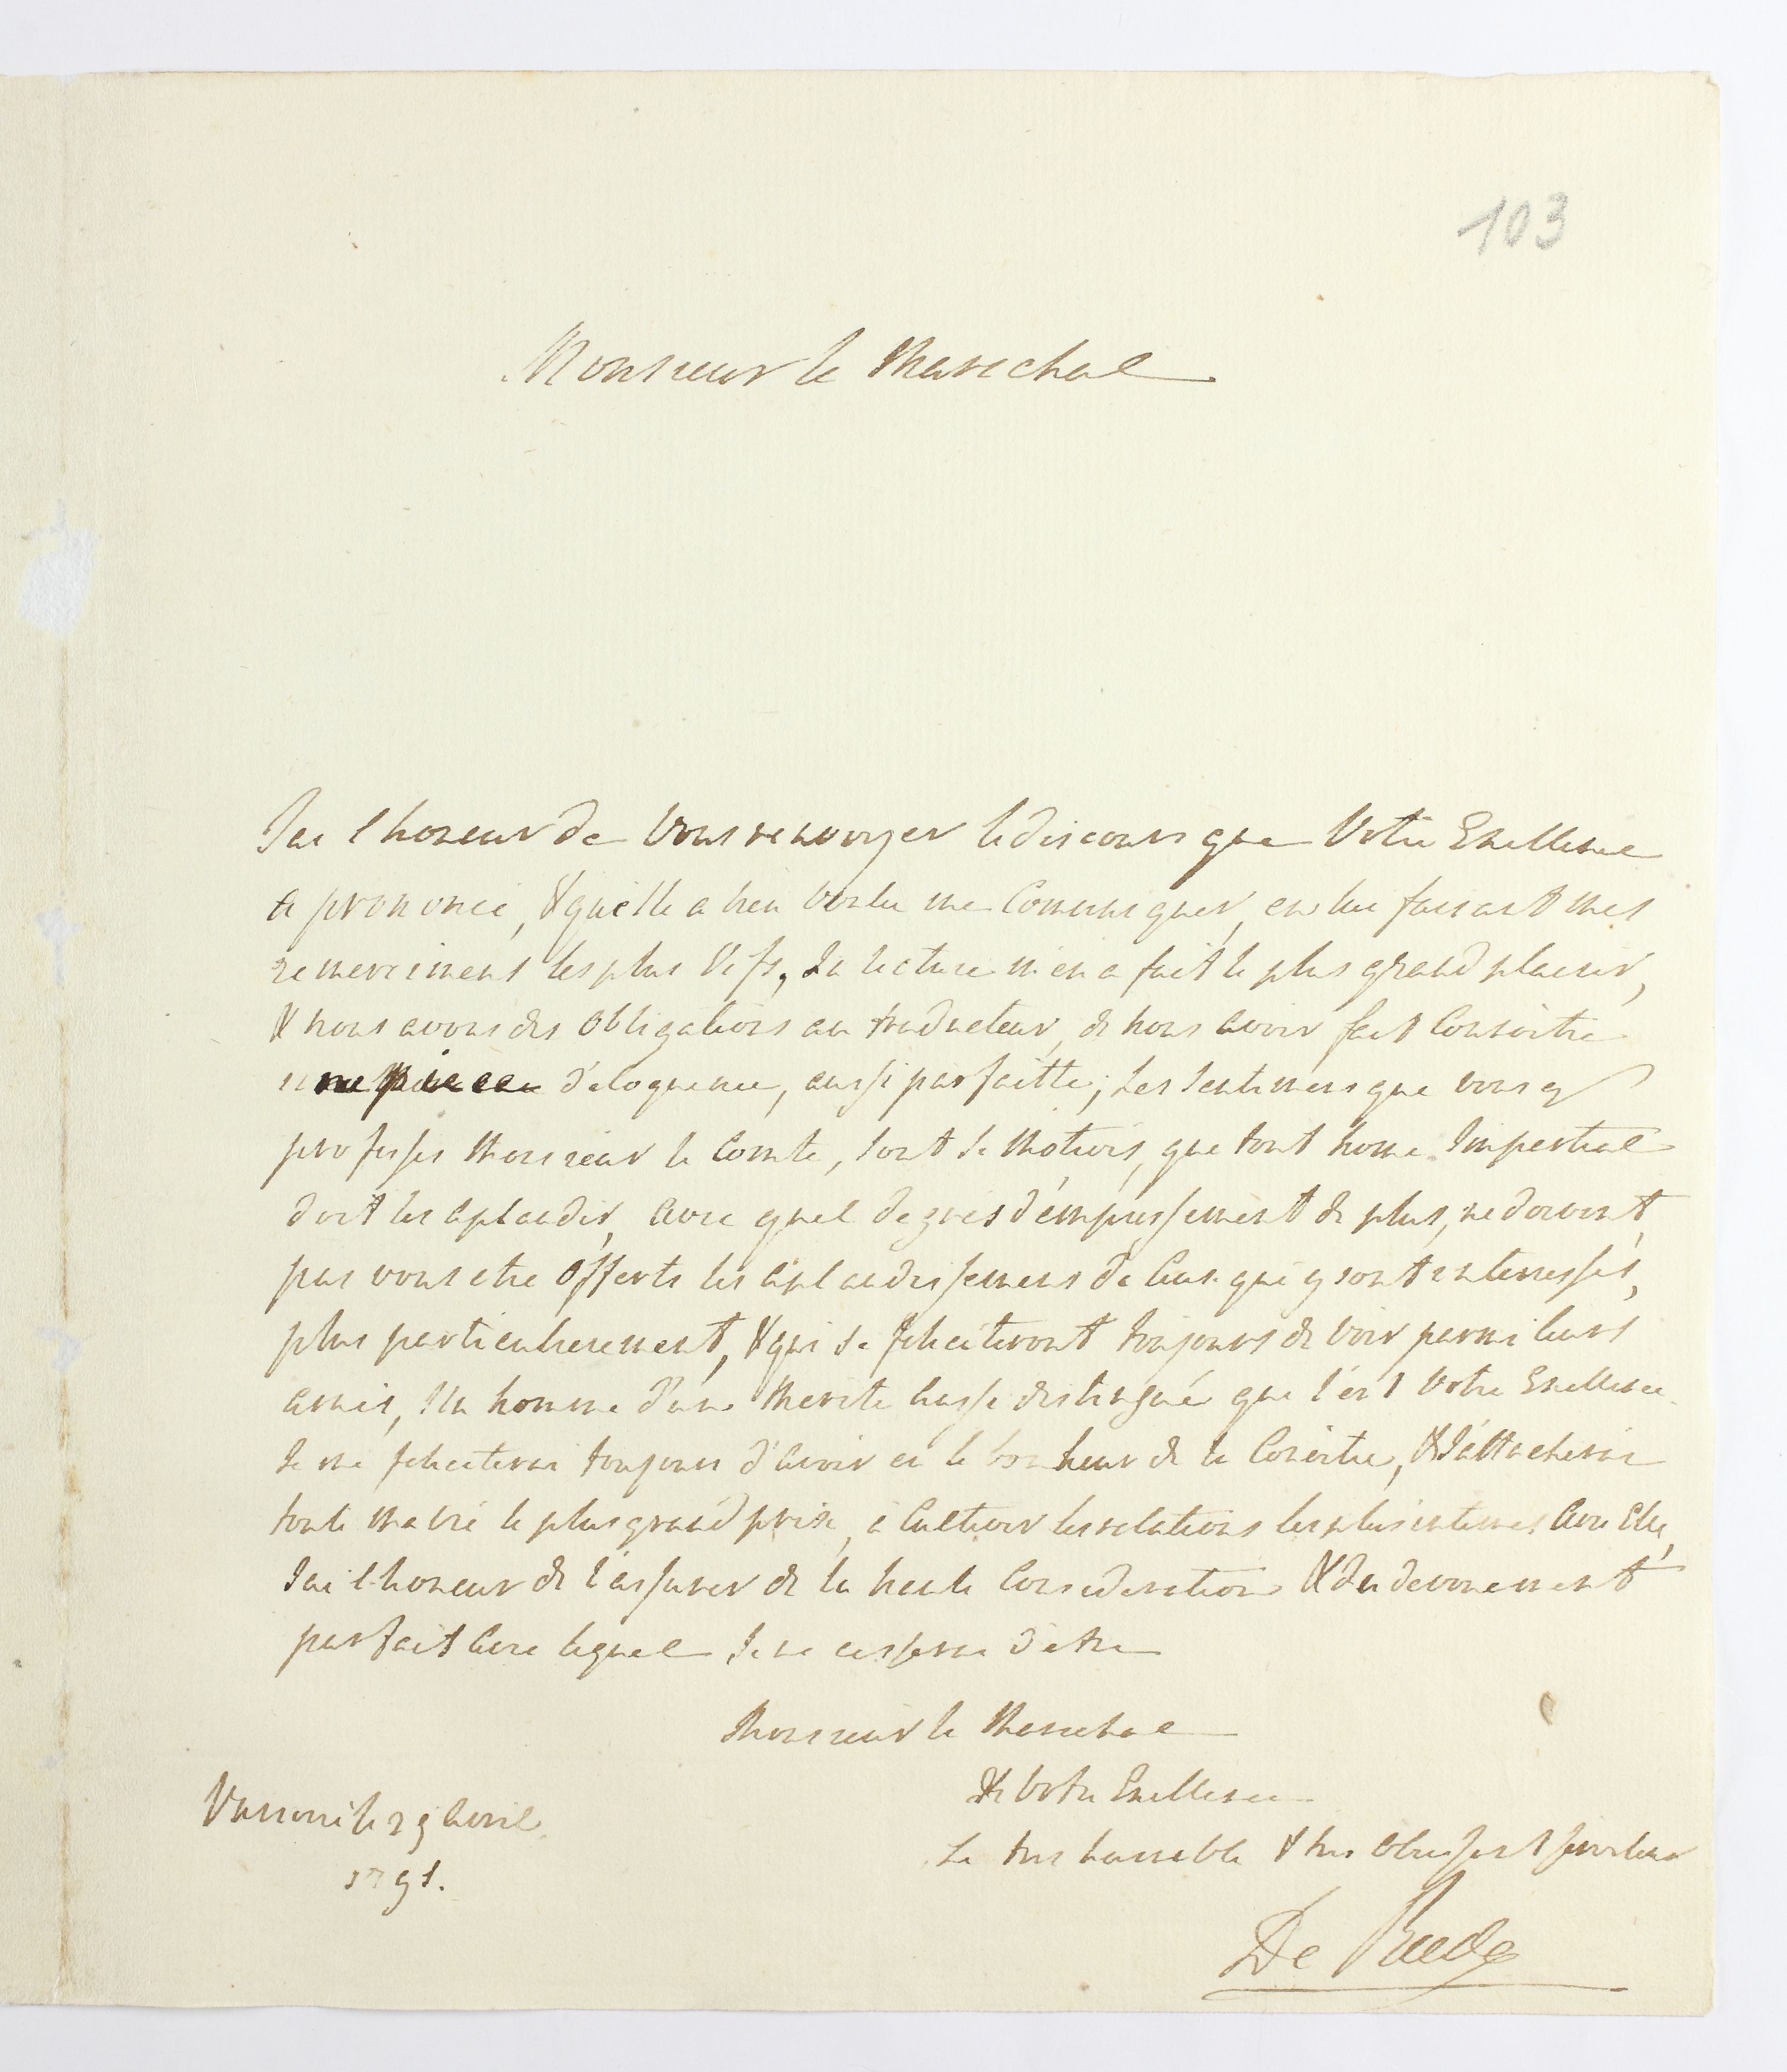 103
Monsieur le Marechal
J'ai l'honeur de Vous renvoyer le discours que Votre Exellence
a prononcé, & qu'elle a bien voulu me Comuniquer, en lui faisant mes
remerciments les plus Vifs, La lecture m'en a fait le plus grand plaisir,
& nous avons des Obligations au traducteur, de nous avoir fait Conoitre
une piece d'eloquence, aussi parfaitte, Les sentimens que vous y
professes Monsieur le Comte, sont si Motivés, que tout home Impartial
doit les aplaudir, avec quel degrés d'empressement de plus, ne doivent
pas vous etre Offerts les aplaudissemens de Ceux qui y sont interressés,
plus particulierement, & qui se feliciteront toujours de voir parmi leurs
amis, Un homme d'un Merite aussi distingué que l'est Votre Exellence
Je me feliciterai toujours d'avoir eu le bonheur de la Conoitre, & J'attacherai
toute ma vie le plus grand prix, à Cultiver les relations les plus intimes Avec Elle,
J'ai l'honeur de l'assurer de la haute Consideration & du devouement
parfait avec lequel Je ne cesserai d'etre
Monsieur le Marechal
De Votre Exellence
Le tres humble & tres Obeissant serviteur
Varsovie le 29 Avril
1791.
De Reede